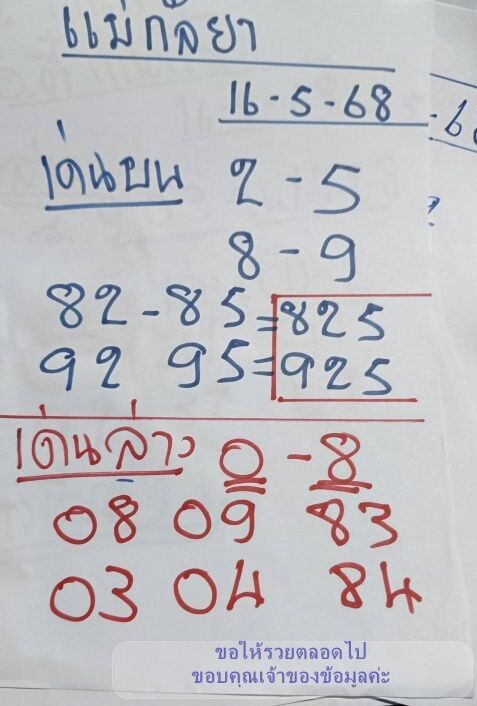 แม่กัลยา
16-5-68
เด่นบน 2-5
8-9
82-85=825
92 95=925
เด่นล่าง 0-8
08 09 83
03 04 84
ขอให้รวยตลอดไป
ขอบคุณเจ้าของข้อมูลค่ะ